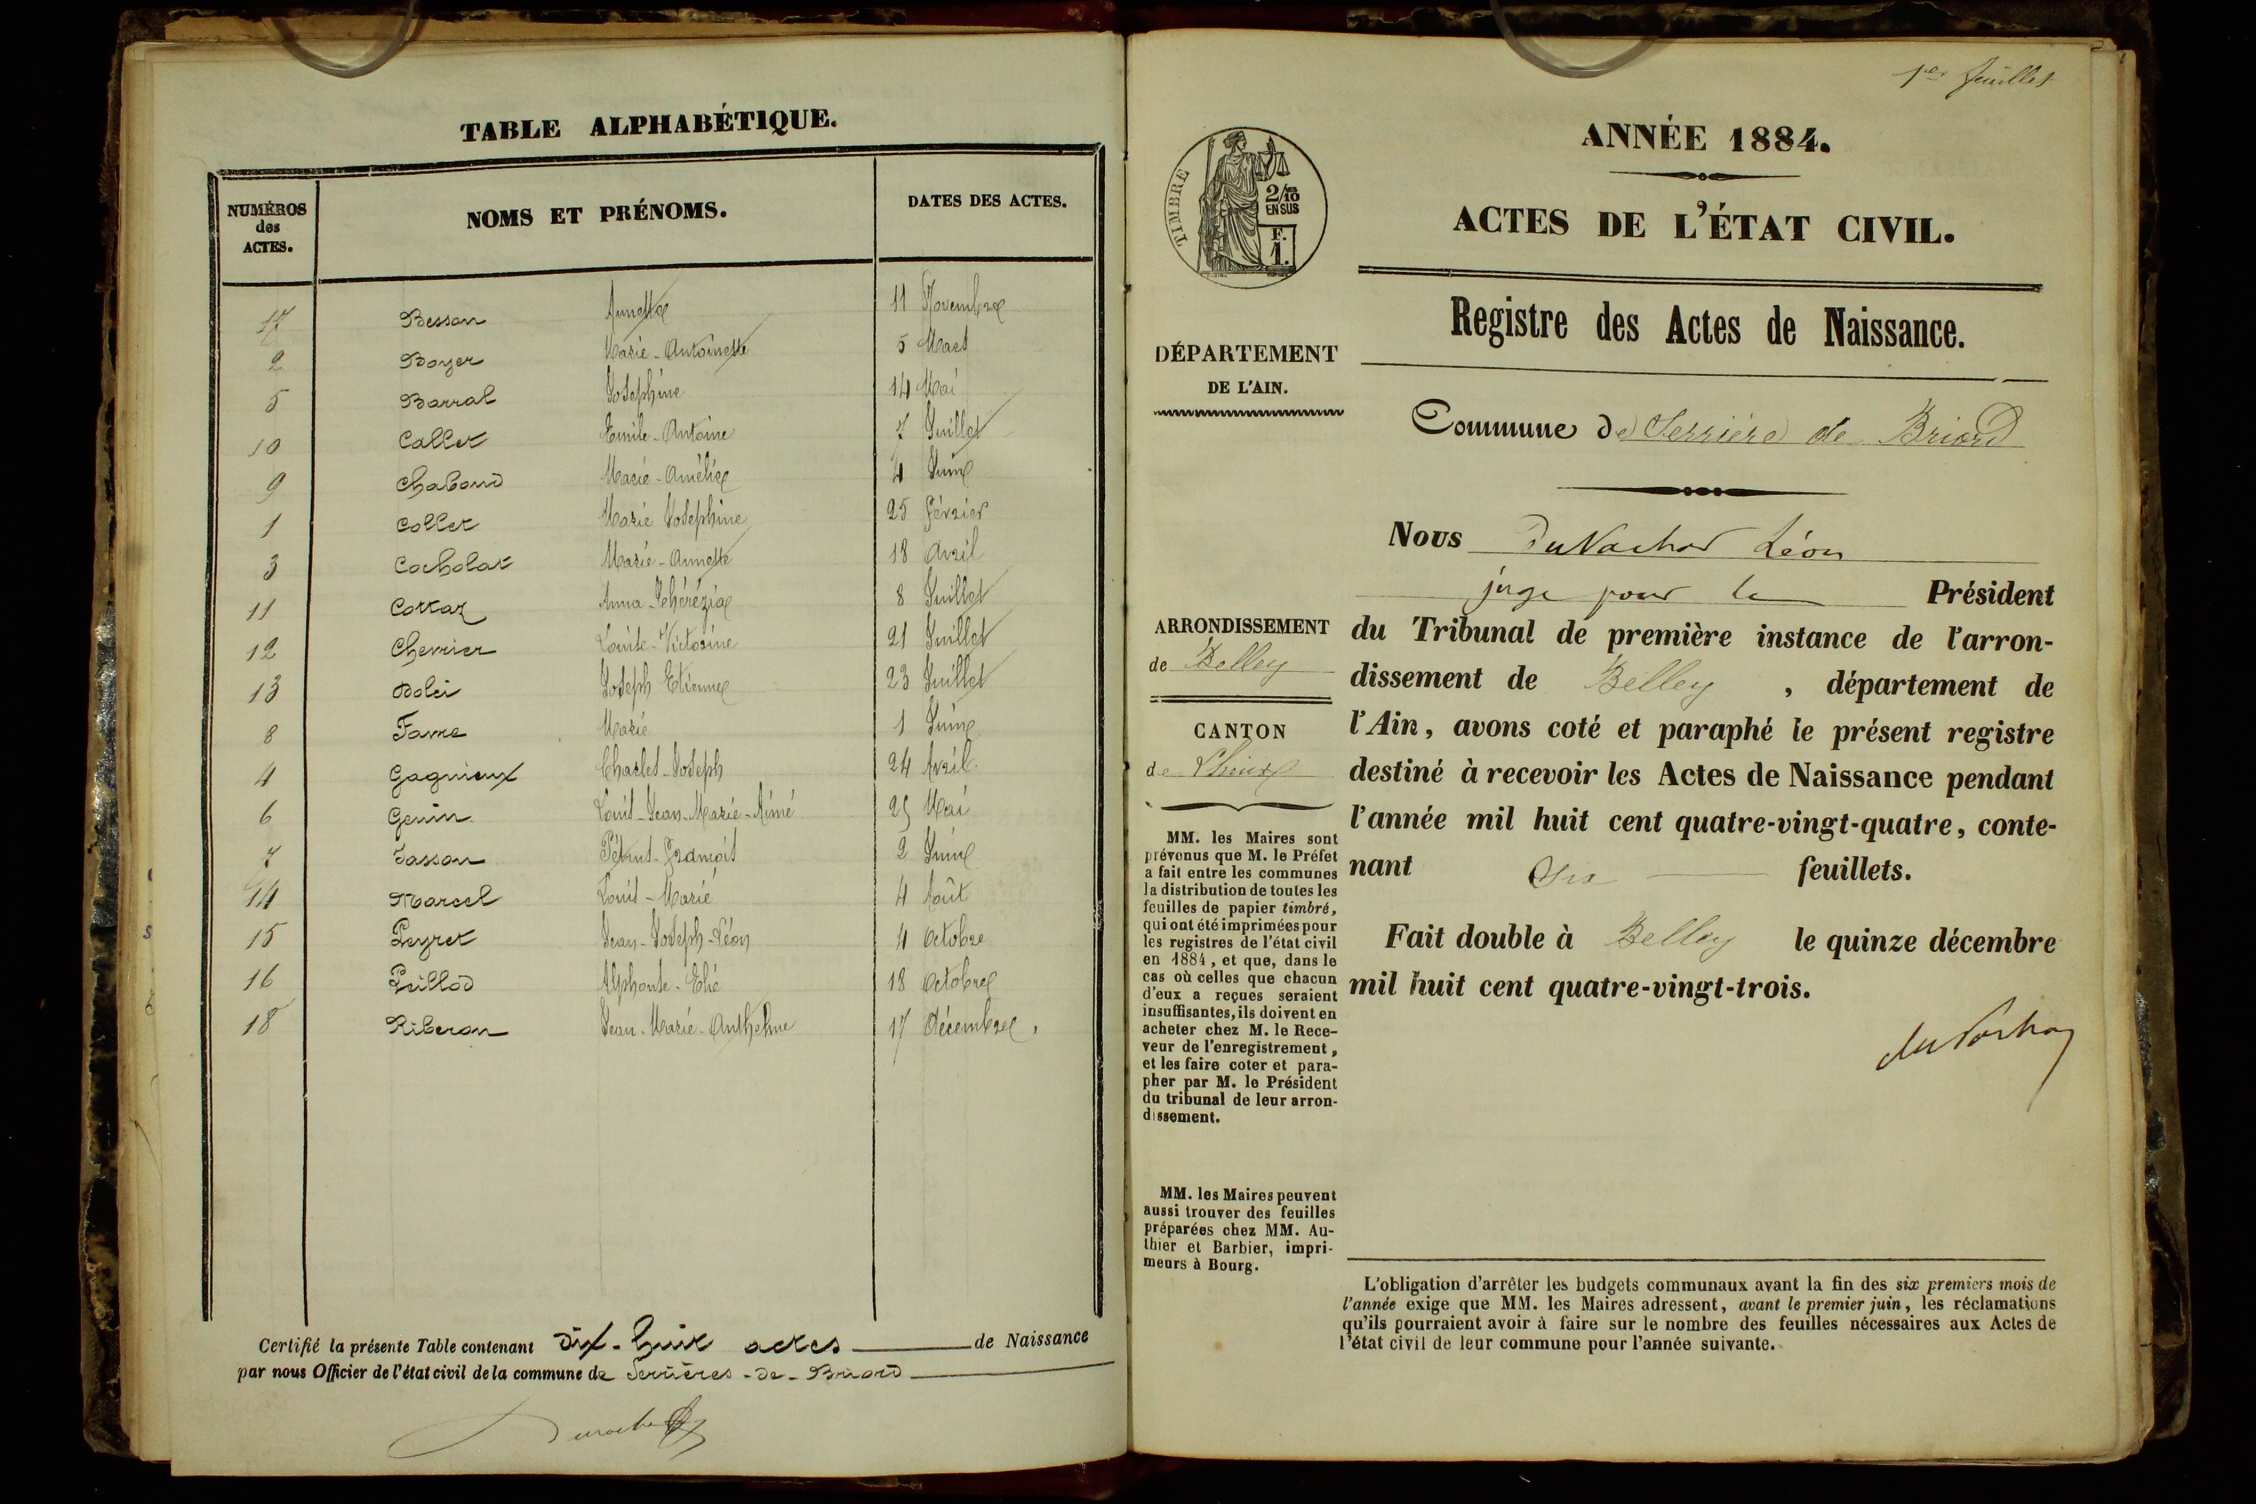 TABLE ALPHABÉTIQUE.
NUMÉROS des ACTES.
NOMS ET PRÉNOMS.
DATES DES ACTES.
17 Besson Annette 11 Novembre
2 Boyer Marie-Antoinette 5 Mars
5 Barral Joséphine 14 Mai
10 Callet Emile-Antoine 7 Juillet
9 Chaboud Marie-Amélie 4 Juin
1 Collet Marie Joséphine 25 Février
3 Cocholat Marie-Annette 18 Avril
11 Cottaz Anna-Thérézia 8 Juillet
12 Chevrier Louise-Victorine 21 Juillet
13 Dolci Joseph Etienne 23 Juillet
8 Favre Marie 1 Juin
4 Gagnieux Charles-Joseph 24 Avril
6 Genin Louis-Jean-Marie-Aimé 25 Mai
7 Jasson François 2 Juin
14 Marcel Louis-Marie 4 Août
15 Peyret Jean-Joseph-Léon 4 Octobre
16 Puillod Alphonse-Elie 18 Octobre
18 Riberon Jean-Marie-Anthelme 17 Décembre
Certifié la présente Table contenant dix-huit actes de Naissance
par nous Officier de l'état civil de la commune de Serrières-de-Briord
1er feuillet
TIMBRE
2/10 EN SUS
F. 1.
ANNÉE 1884.
ACTES DE L'ÉTAT CIVIL.
Registre des Actes de Naissance.
DÉPARTEMENT
DE L'AIN.
Commune de Serrière de Briord
ARRONDISSEMENT
de Belley
CANTON
de Lhuis
MM. les Maires sont
prévenus que M. le Préfet
a fait entre les communes
la distribution de toutes les
feuilles de papier timbré,
qui ont été imprimées pour
les registres de l'état civil
en 1884, et que, dans le
cas où celles que chacun
d'eux a reçues seraient
insuffisantes, ils doivent en
acheter chez M. le Rece-
veur de l'enregistrement,
et les faire coter et para-
pher par M. le Président
du tribunal de leur arron-
dissement.
MM. les Maires peuvent
aussi trouver des feuilles
préparées chez MM. Au-
thier et Barbier, impri-
meurs à Bourg.
Nous Du Nachod Léon
juge pour le Président
du Tribunal de première instance de l'arron-
dissement de Belley, département de
l'Ain, avons coté et paraphé le présent registre
destiné à recevoir les Actes de Naissance pendant
l'année mil huit cent quatre-vingt-quatre, conte-
nant six feuillets.
Fait double à Belley le quinze décembre
mil huit cent quatre-vingt-trois.
L'obligation d'arrêter les budgets communaux avant la fin des six premiers mois de
l'année exige que MM. les Maires adressent, avant le premier juin, les réclamations
qu'ils pourraient avoir à faire sur le nombre des feuilles nécessaires aux Actes de
l'état civil de leur commune pour l'année suivante.